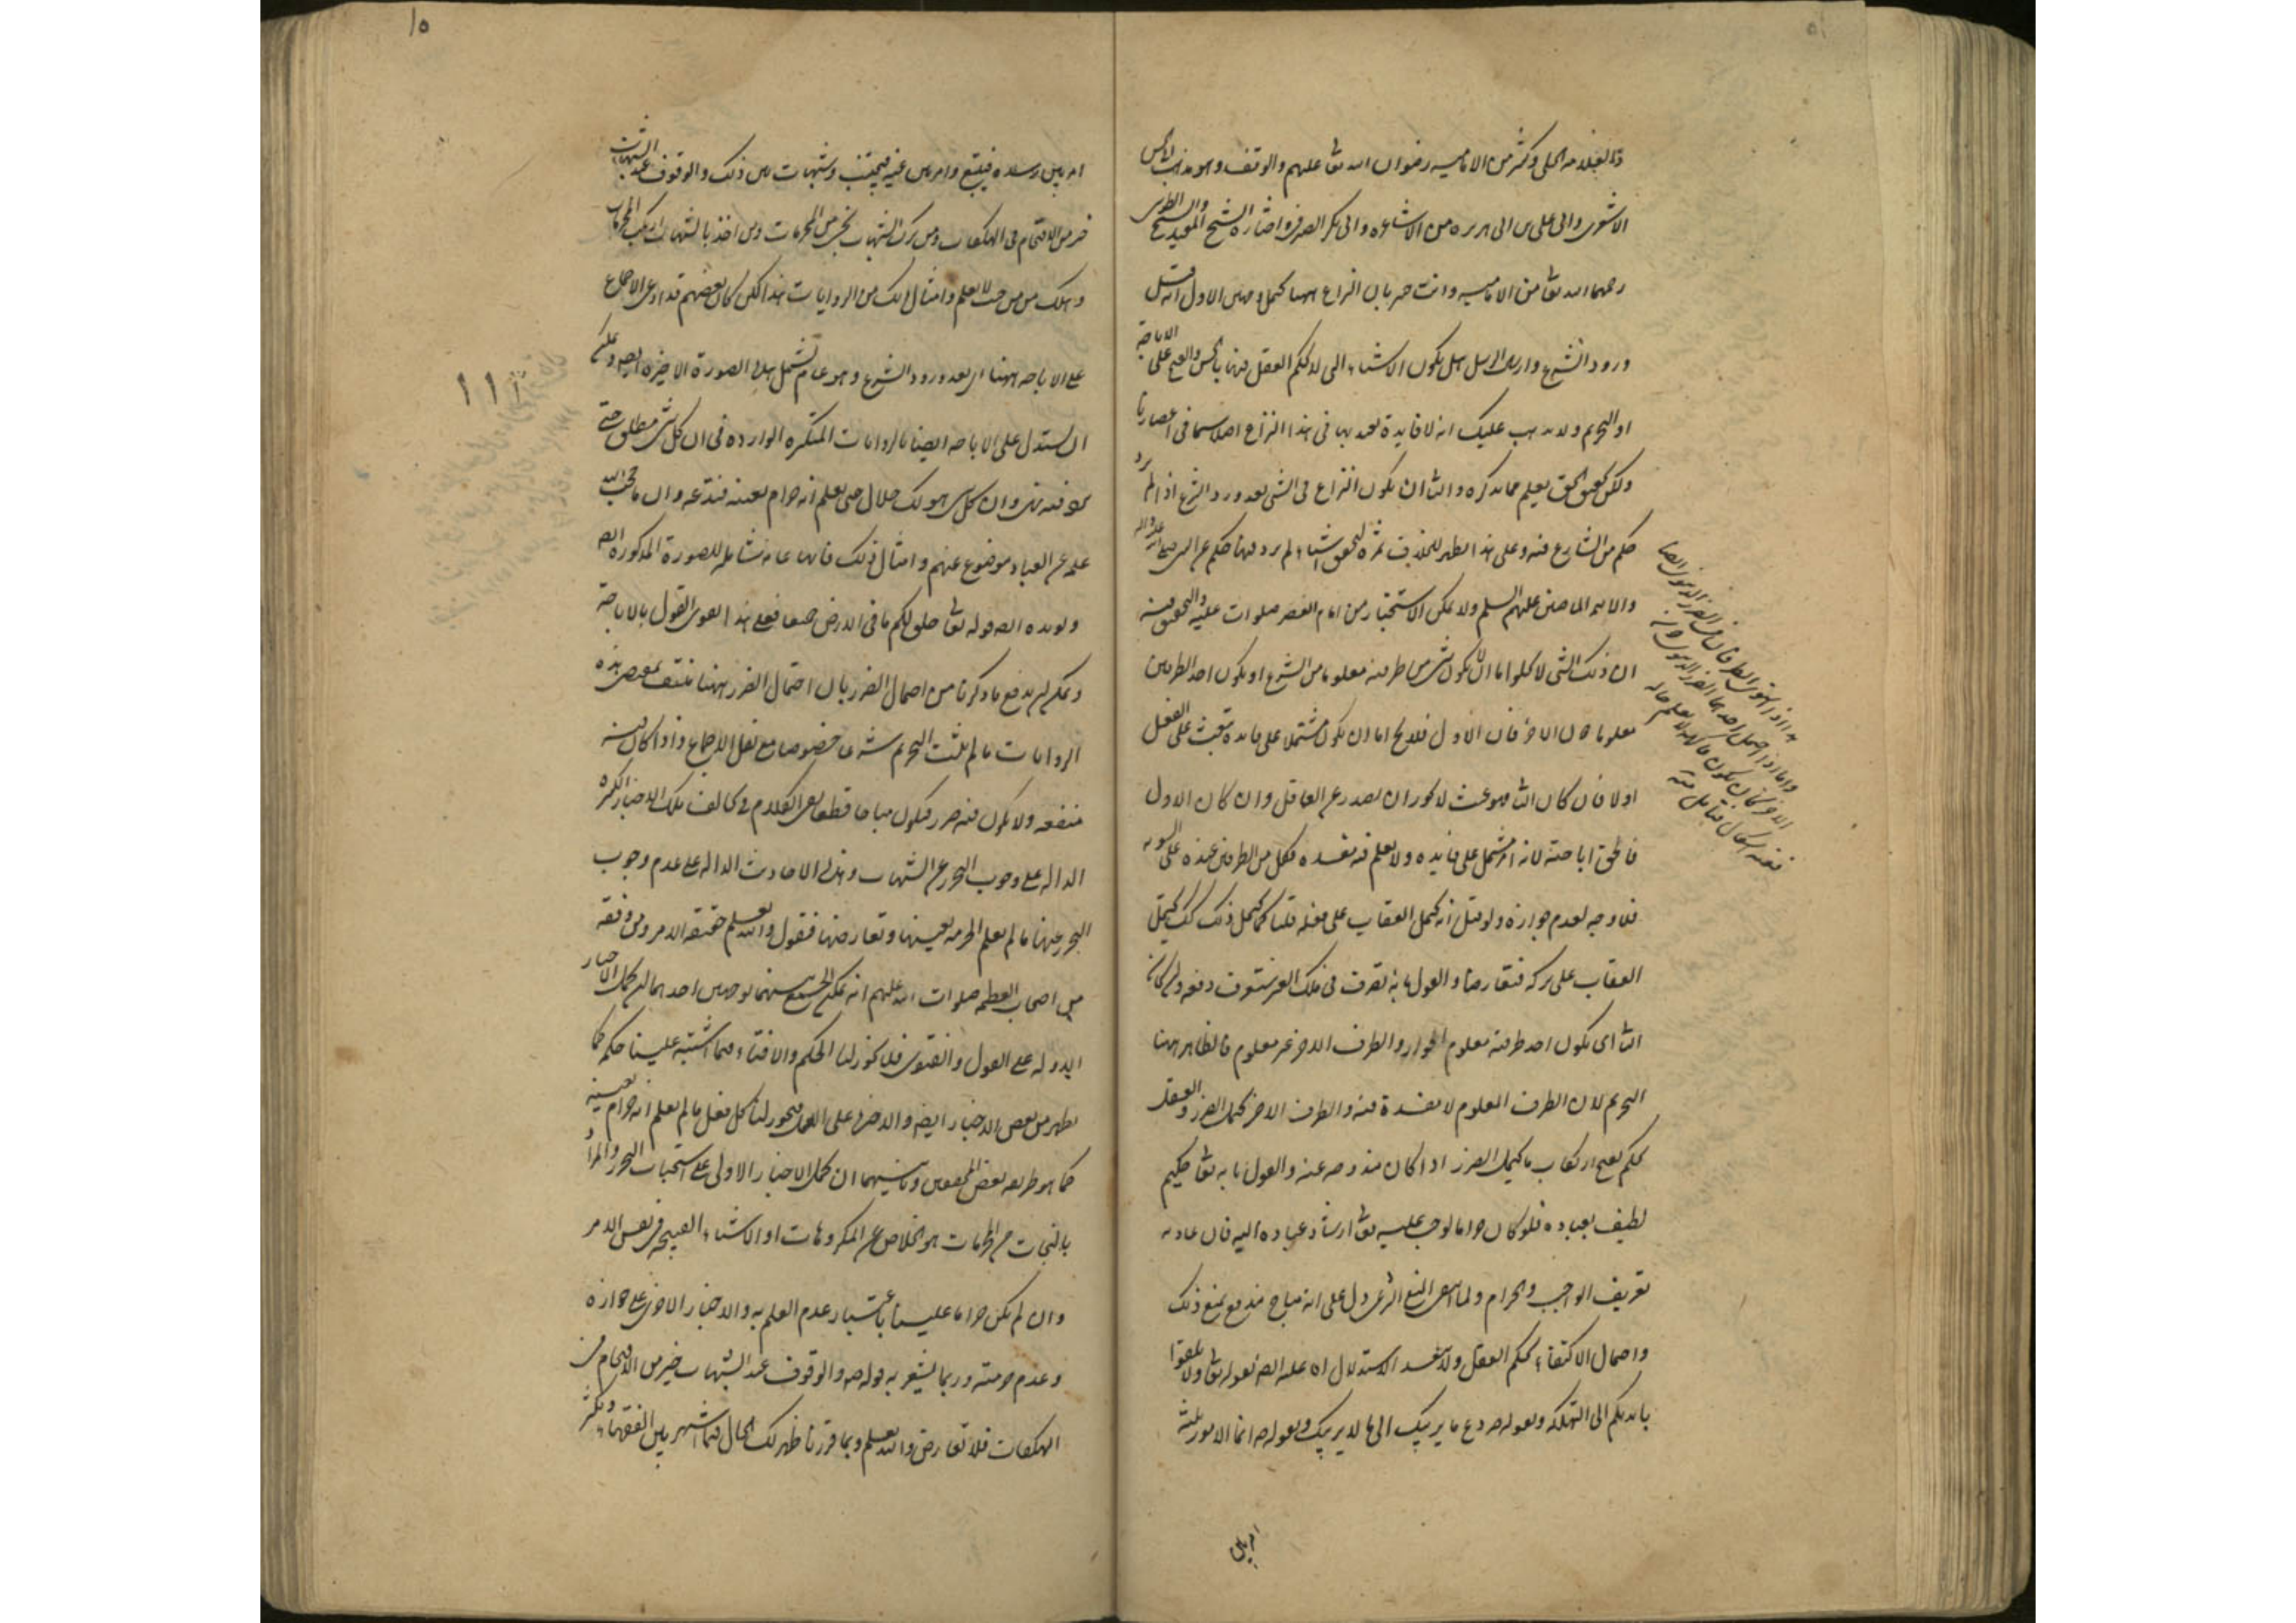 والعلامه الحلى وكثير من الاماميه رضوان الله تعا عليهم والوقف وهو مذهب
الاشعرى والى على بن ابى هريره من الاشاعره والى بكر الصيرفى واختاره الشيخ المفيد والشيخ الطوسى
رحمهما الله تعا من الاماميه وانت خبر بان النزاع ههنا يحتمل وجهين الاول انه قبل
ورود الشرع وارسال الرسل هل يكون الاشياء التى لا يحكم العقل فيها بالحسن والقبح على الاباحة
او التحريم ولا يذهب عليك انه لا فايدة يعتد بها فى هذا النزاع اصلا سيما فى اعصارنا
ولكن تحقيق الحق يعلم مما نذكره والثا ان يكون النزاع فى الشى بعد ورود الشرع اذا لم يرد
حكم من الشارع فيه وعلى هذا يظهر للخلاف ثمرة لتحقق اشياء لم يرد فيها حكم عن النبى صلى الله عليه واله
والائمه الماضين عليهم السلم ولا يمكن الاستخبار من امام العصر صلوات عليه والتحقيق فيه
ان ذلك الشى لا يخلوا اما ان لا يكون شى من طرفيه معلوما من الشرع او يكون احد الطرفين
معلوما دون الاخر فان الاول فلا يخ اما ان يكون مشتملا على فايدة تبعث على الفعل
اولا فان كان الثا فهو عبث لا يجوز ان يصدر عن العاقل وان كان الاول
فالحق اباحته لانه امر مشتمل على فايده ولا يعلم فيه مفسده فكل من الطرفين عنده على السويه
فلا وجه لعدم جوازه ولو قيل انه يحتمل العقاب على فعله قلنا كما يحتمل ذلك كك يحتمل
العقاب على تركه فتعارضا والقول بانه تصرف فى ملك الغير ستعرف دفعه وان كان
الثا اى يكون احد طرفيه معلوم الجواز والطرف الاخر غير معلوم فالظاهر ههنا
التحريم لان الطرف المعلوم لا مفسدة فيه والطرف الاخر يحتمل الضرر والعقل
يحكم بقبح ارتكاب ما يحتمل الضرر اذا كان مندوحه عنه والقول بانه تعا حكيم
لطيف بعباده فلو كان حراما لوجب عليه تعا ارشاد عباده اليه فان عادته
تعريف الواجب والحرام ولما انتفى المنع الشرعى دل على انه مباح مندفع بمنع ذلك
واحتمال الاكتفاء بحكم العقل ولا يبعد الاستدلال عليه ايضا بقوله تعا ولا تلقوا
بايديكم الى التهلكه وبقوله ص دع ما يريبك الى ما لا يريبك وبقوله ص انما الامور ثلثة
امر بين
امر بين رشده فيتبع وامر بين غيه فيجتنب وشبهات بين ذلك والوقوف عند الشبهات
خير من الاقتحام فى الهلكات ومن ترك الشبهات نجى من المحرمات ومن اخذ بالشبهات ارتكب المحرمات
وهلك من حيث لا يعلم وامثال ذلك من الروايات هذا لكن كان بعضهم قد ادعى الاجماع
على الاباحه ههنا اى بعد ورود الشرع وهو عام يشمل هذه الصورة الاخيره ايضا ويمكن
ان يستدل على الاباحه ايضا بالروايات المتكثره الوارده فى ان كل شى مطلق حتى
يرد فيه نهى وان كل شى هو لك حلال حتى يعلم انه حرام بعينه فتدعه وان ما حجب الله
علمه عن العباد موضوع عنهم وامثال ذلك فانها عامه شامله للصورة المذكوره ايضا
ويويده ايضا قوله تعا خلق لكم ما فى الارض جميعا فعلى هذا يقوى القول بالاباحة
ويمكن ان يدفع ما ذكرنا من احتمال الضرر بان احتمال الضرر ههنا منتف بمقتضى هذه
الروايات ما لم يثبت التحريم شرعا خصوصا مع نقل الاجماع واذا كان فيه
منفعه ولا يكون فيه ضرر فيكون مباحا قطعا بقى الكلام فى مخالفة تلك الاخبار الكثيره
الداله على وجوب التحرز عن الشبهات وهذه الاحاديث الداله على عدم وجوب
التحرز عنها ما لم يعلم الحرمه بعينها وتعارضها فنقول والله يعلم حقيقه الامر ومن وفقه
من اصحاب العصمه صلوات الله عليهم انه يمكن الجمع بينهما بوجهين احدهما ان يحمل الاخبار
الاوله على القول والفتوى فلا يجوز لنا الحكم والافتاء فيما اشتبه علينا حكمه كما
يظهر من بعض الاخبار ايضا والاخرى على العمل فيجوز لنا كل فعل ما لم يعلم انه حرام بعينه
كما هو طريقه بعض المحققين وثانيهما ان يحمل الاخبار الاولى على استحباب التحرز والمراد
بالنجات من المحرمات هو الخلاص عن المكروهات او الاشياء القبيحه فى نفس الامر
وان لم يكن حراما علينا باعتبار عدم العلم به والاخبار الاخرى على جوازه
وعدم حرمته وربما يشعر به قوله ص والوقوف عند الشبهات خير من الاقتحام فى
الهلكات فلا تعارض والله يعلم وبما قررنا ظهر لك الحال فيما اشتهر بين الفقهاء
١٥